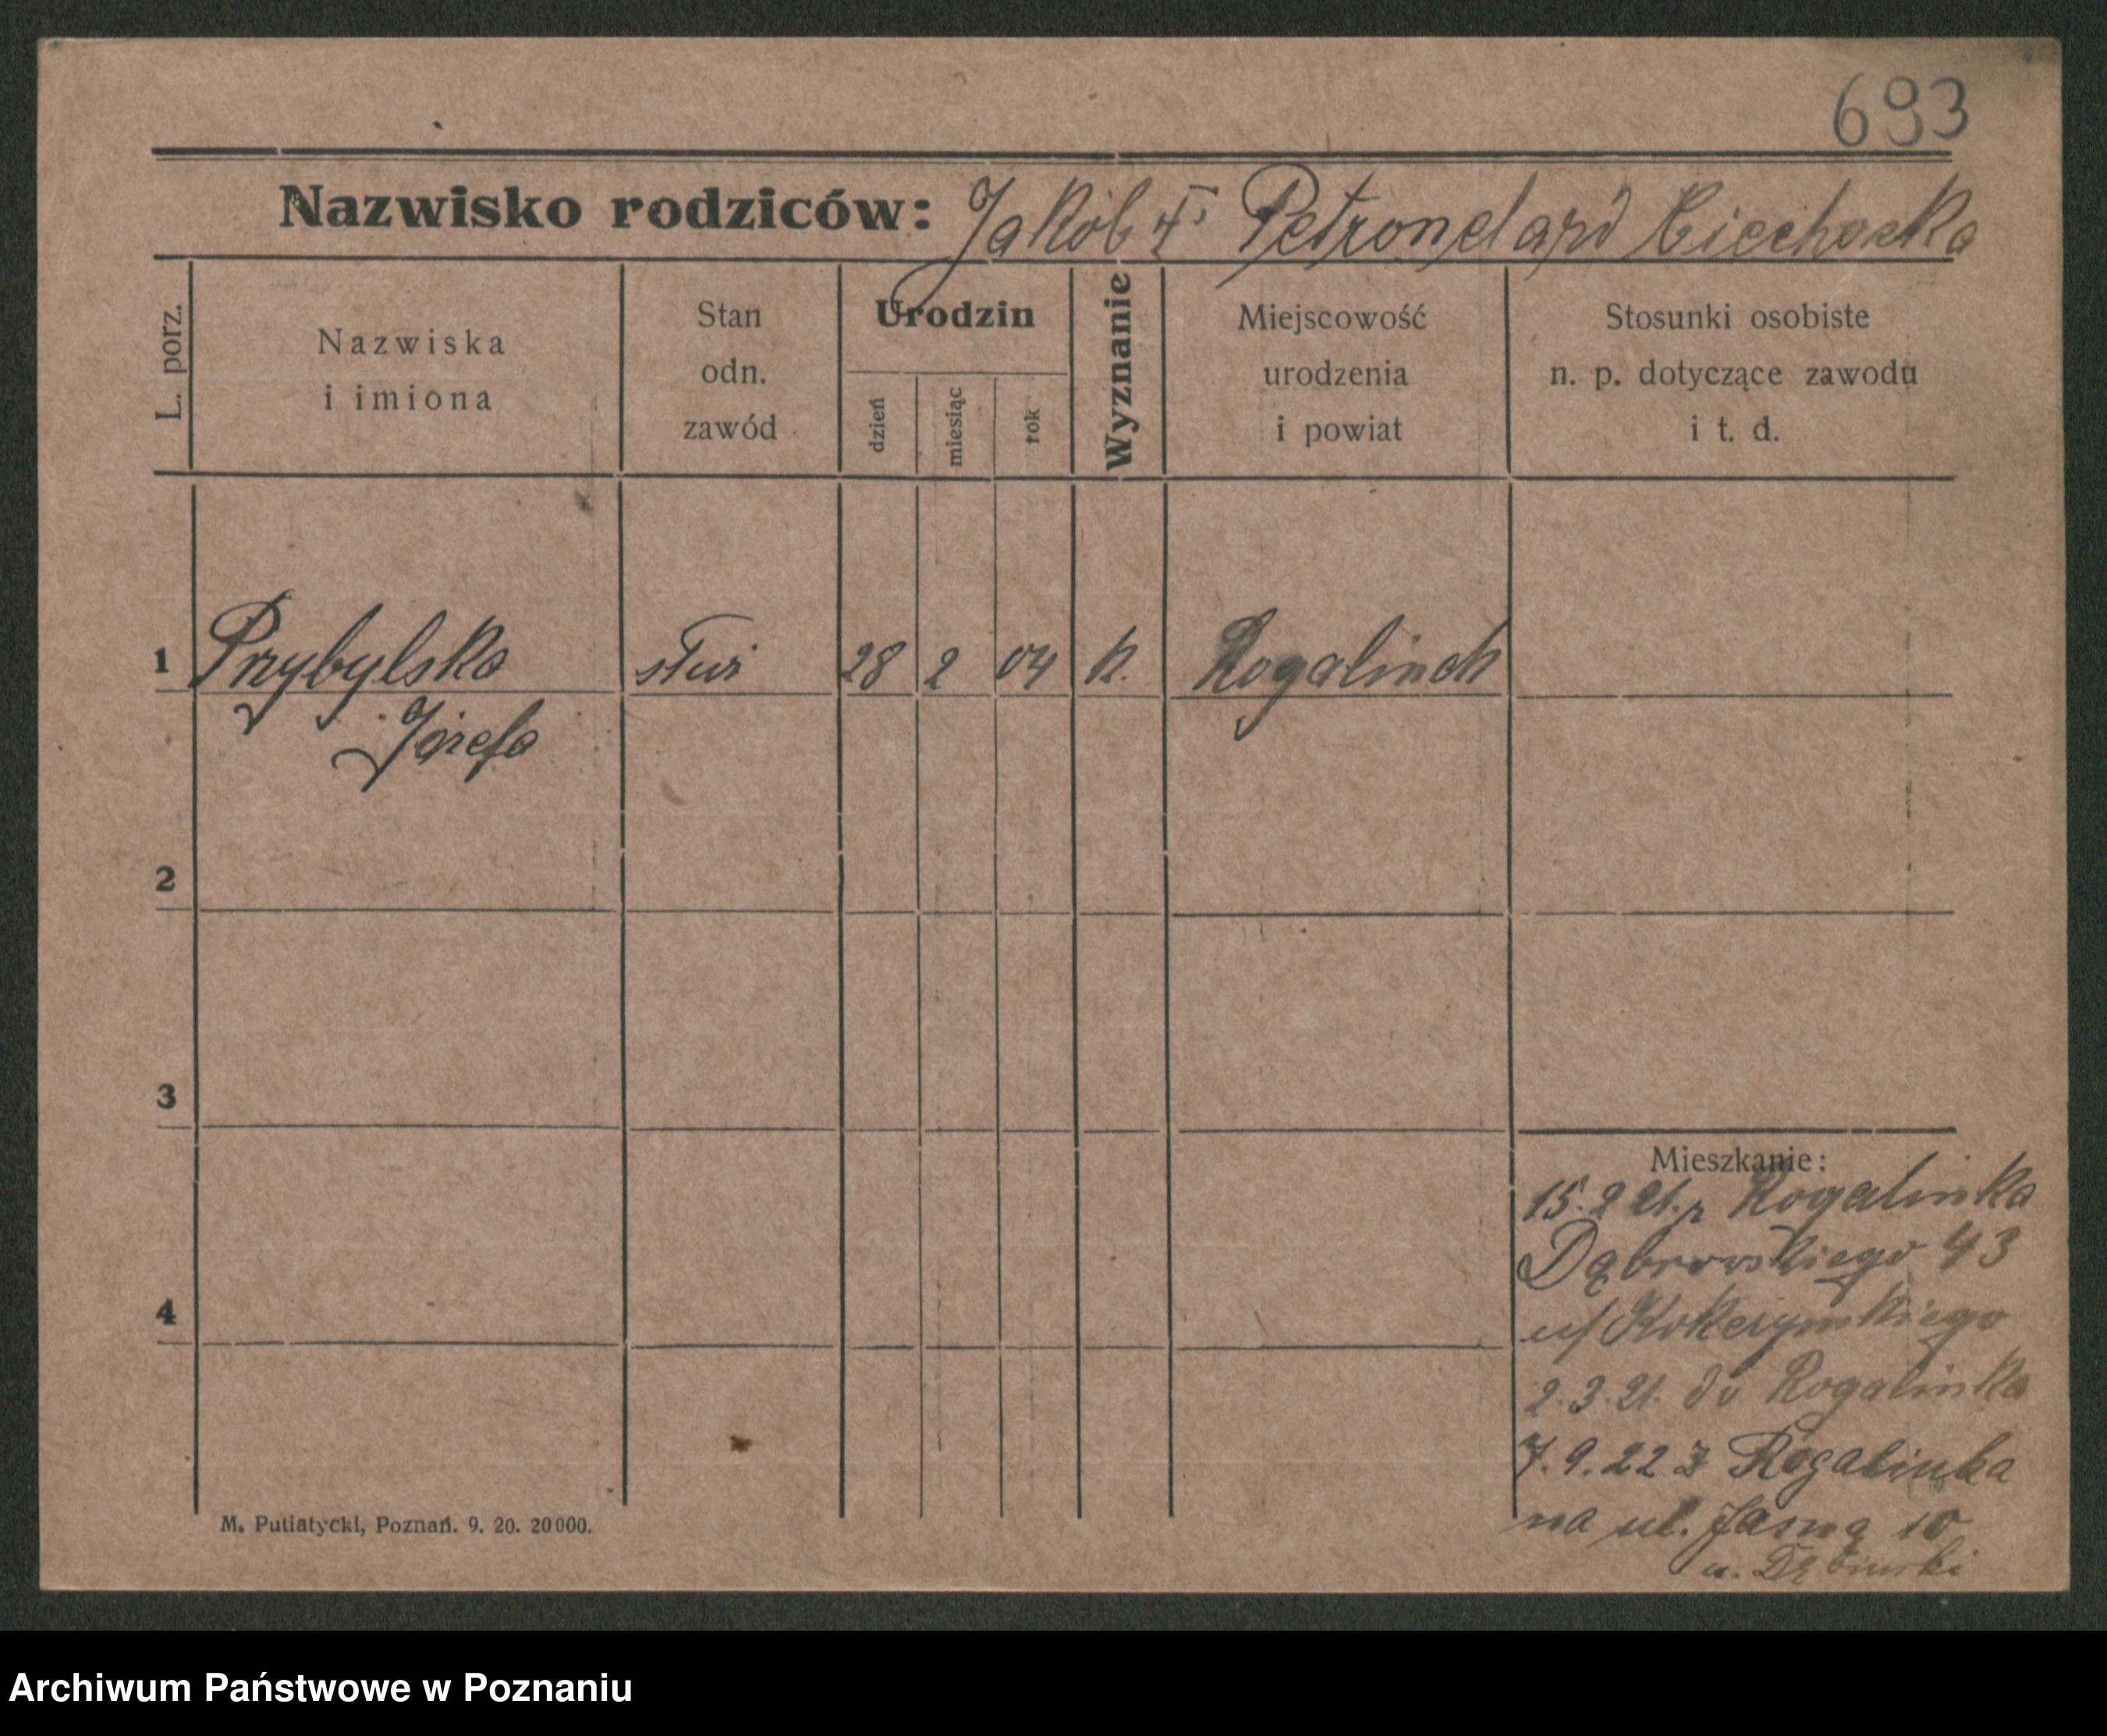 693
Nazwisko rodziców: Jakób i Petronela
L. porz.
Nazwiska
i imiona
Stan
odn.
zawód
Urodzin
dzień
miesiąc
rok
Wyznanie
Miejscowość
urodzenia
i powiat
Stosunki osobiste
n. p. dotyczące zawodu
i t. d.
1 Przybylska 28 2 04 k. Rogalinek
Józefa
2
3
4
Mieszkanie:
15.2 21. z Rogalinka
Dąbrowskiego 43
u/
2.3.21. do Rogalinka
7.9.22 z Rogalinka
na ul. Jasną 10
u.
M. Putiatycki, Poznań. 9. 20. 20000.
Archiwum Państwowe w Poznaniu